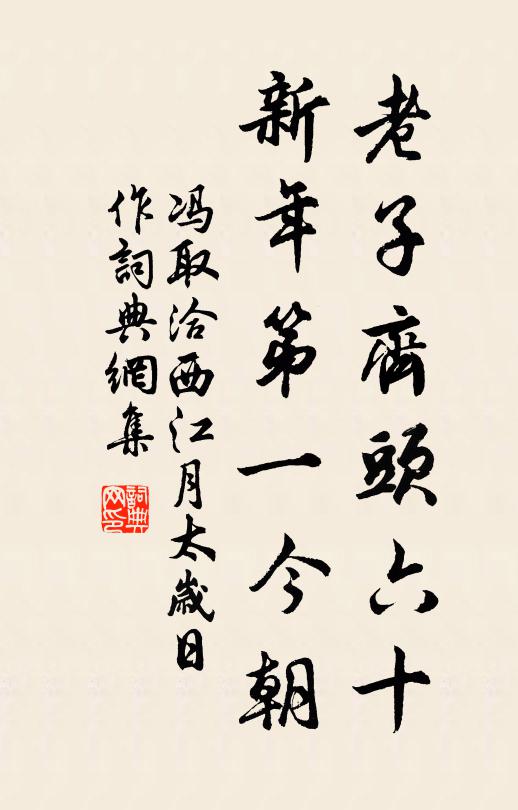 老子齊頭六十
新年第一今朝
冯取洽西江月太歲日
作詞典網集
詞典网印